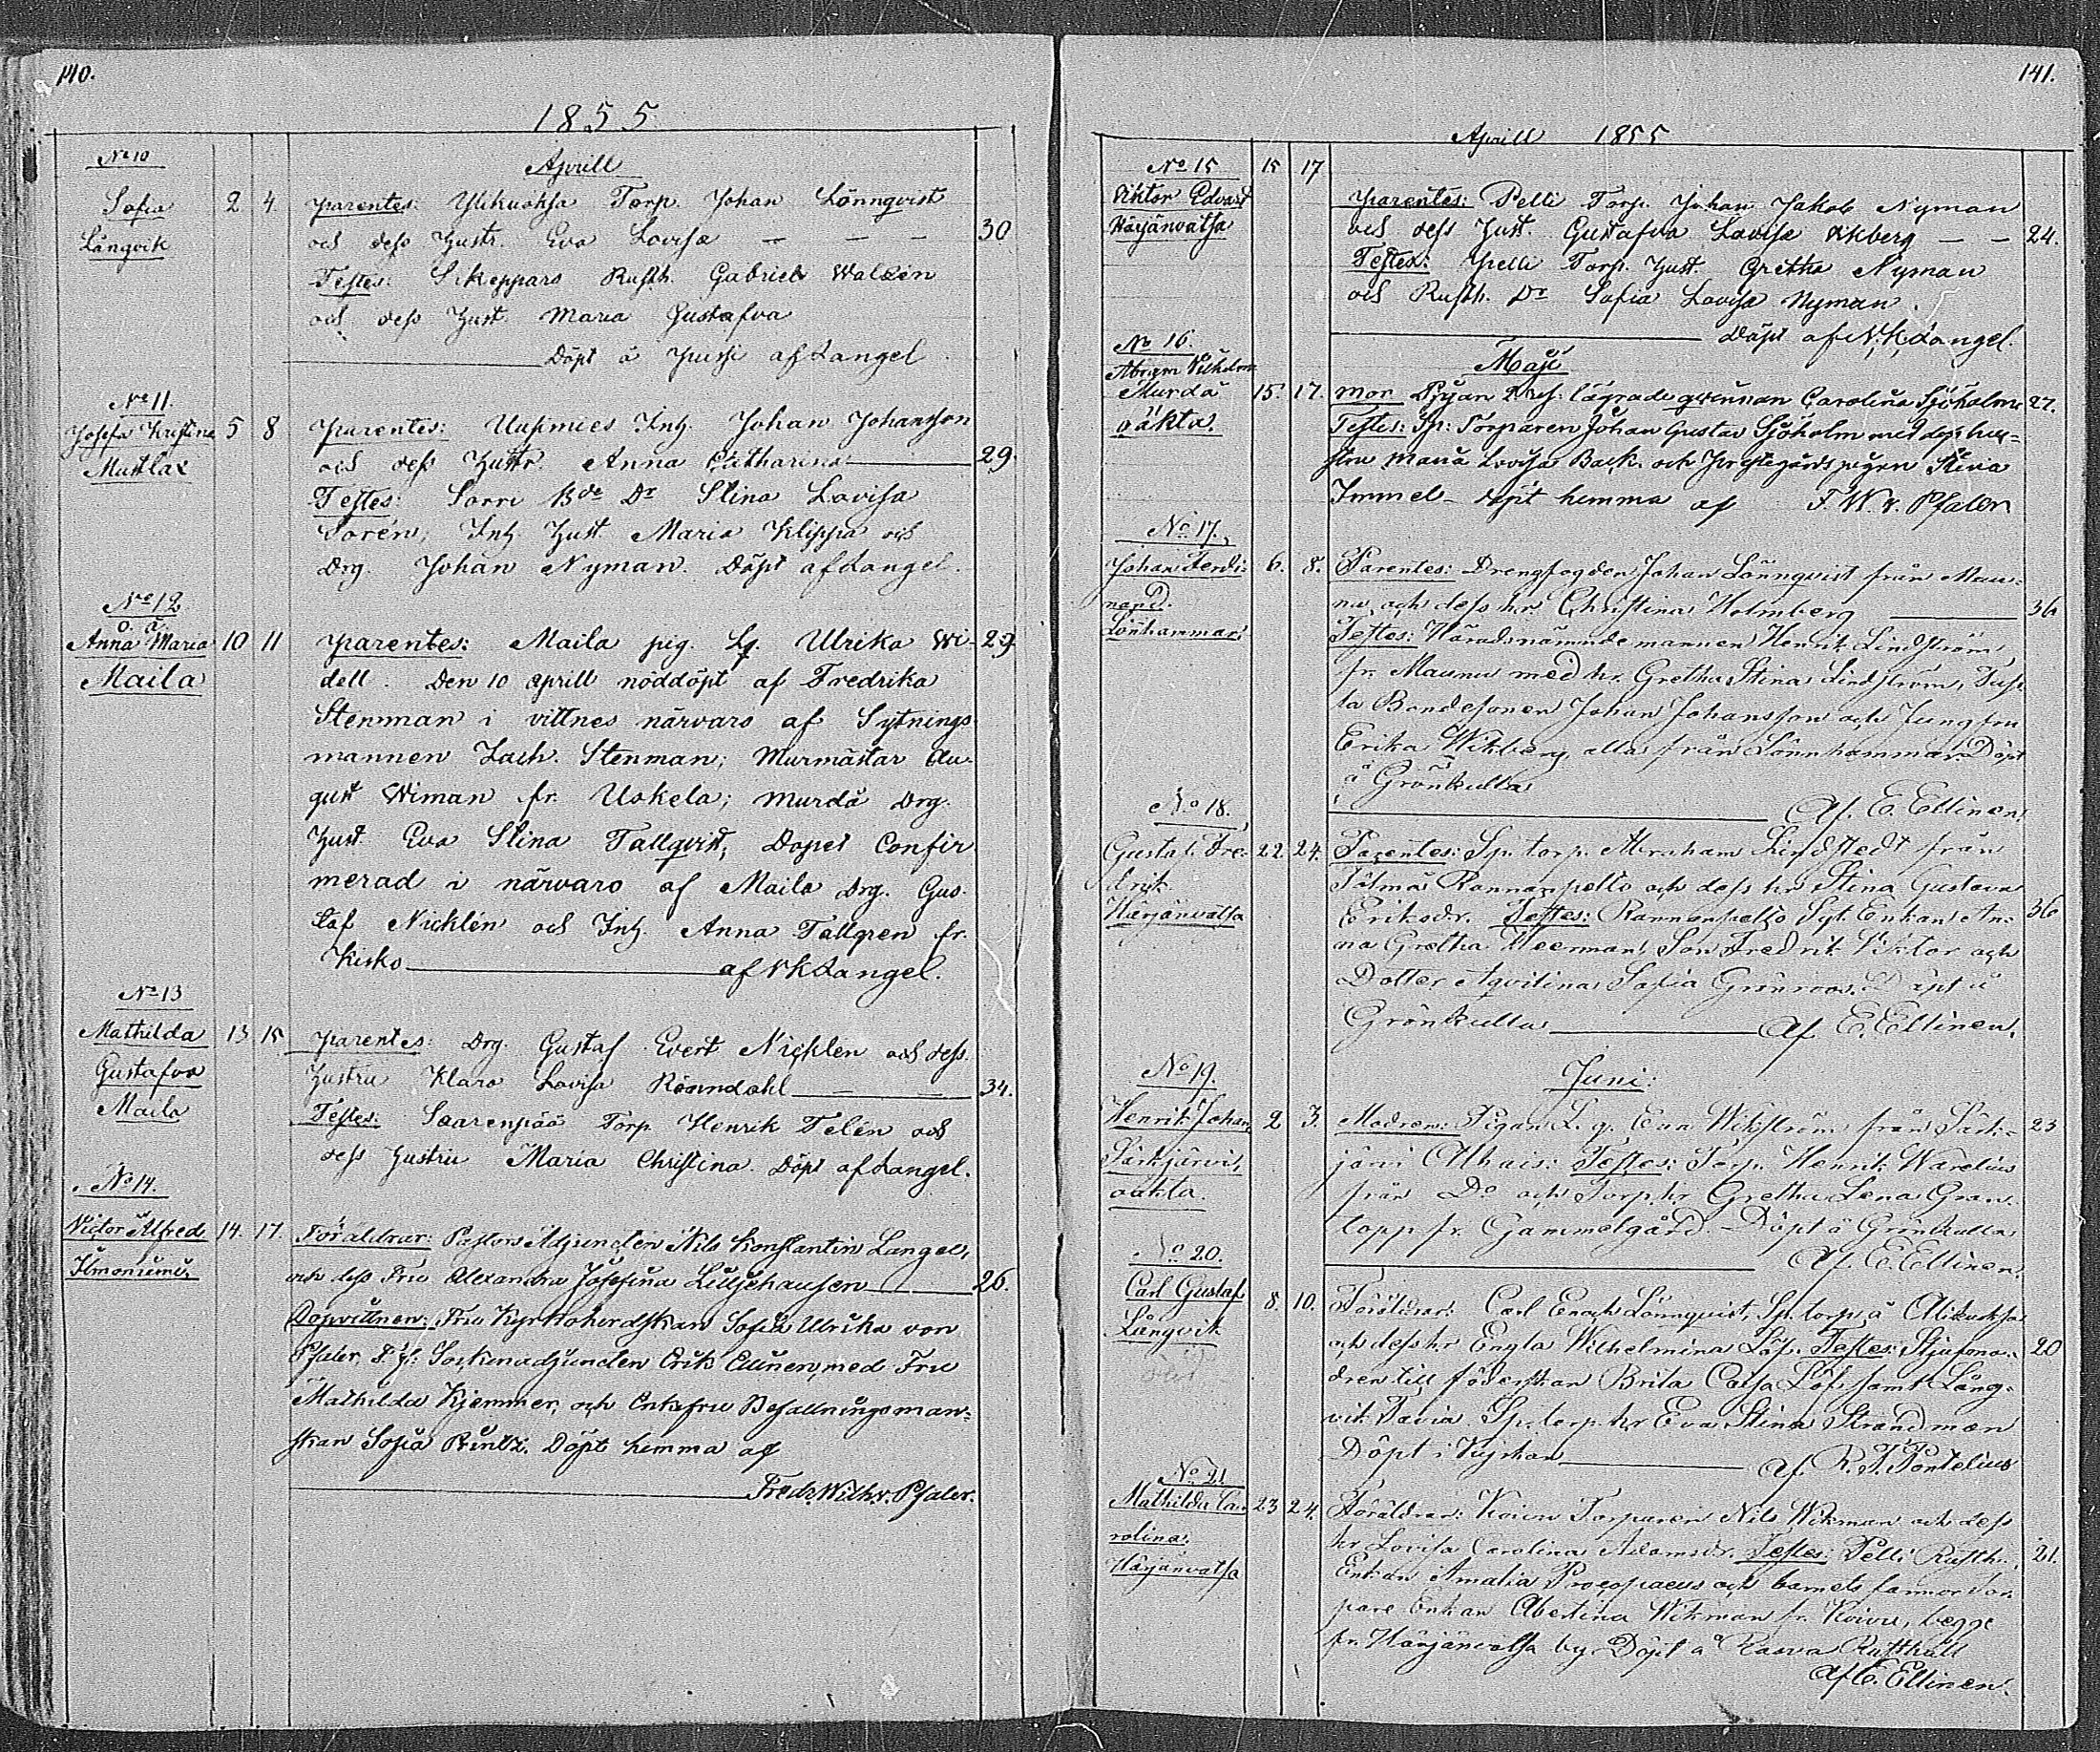 140.
1855
Aprill
No 10
Sofia
Långvik
2 4
Parentes: Ylikuoksa Torp. Johan Lönnqvist
och dess Hustr. Eva Lovisa — — — 30
Testes: Skeppars Rusth. Gabriel Walén
och dess Hust. Maria Gustafva
Döpt å af Langel
No 11.
Josefa Kristina 5 8
Mustlax
Parentes: Uusmies Inh. Johan Johansson
och dess Hustr. Anna Catharina 29.
Testes: Sorri Bde Dr Stina Lovisa
Sorén, Inh. Hust. Maria Klippa och
Drg. Johan Nyman. Döpt af Langel.
No 12
o. ä.
Anna Maria 10 11
Maila
Parentes: Maila pig. Lg. Ulrika Wi- 29
dell. Den 10 aprill nöddöpt af Fredrika
Stenman i vittnes närvaro af Sytnings
mannen Zach. Stenman; Murmästar Au-
gust Wiman fr. Uskela; Murdå Drg.
Hust Eva Stina Tallqvist, Dopet Confir
merad i närvaro af Maila Drg. Gus-
taf Nicklén och Inh. Anna Tallgren fr.
Kisko af NKLangel.
No 13
Mathilda 13 15
Gustafva
Maila
Parentes: Drg. Gustaf Evert Nicklen och dess
Hustru Klara Lovisa Rosendahl 34.
Testes: Saarenpää Torp Henrik Telén och
dess Hustru Maria Christina. Döpt af Langel.
No 14.
Victor Alfred 14. 17.
Ilmoniemi.
Föräldrar: Pastors Adjuncten Nils Konstantin Langel,
och dess Fru Alexandra Josefina Lilljehausen 26.
Dopvittnen: Fru Kyrkoherdskan Sofia Ulrika von
Pfaler, Sockneadjuncten Erik Ellinen, med Fru
Mathilda Kjemmer, och Enkefru Befallningsman-
skan Sofia Printz. Döpt hemma af
Fredr. Wilh. v. Pfaler.
141.
Aprill 1855
No 15 15 17
Viktor Edvard
Härjänvatsa
Parentes: Pelli Torp. Johan Jakob Nyman
och dess Hust. Gustafva Lovisa Ekberg — — 24.
Testes: Pelli Torp. Hust. Gretha Nyman
och Rusth. Dr Sofia Lovisa Nyman.
Döpt af N.K.Langel.
Maji
No 16.
Abram Vilhelm
Murdå 15. 17.
oäkta.
Mor Pigan lägrade qvinnan Carolina Sjöholm 27.
Testes: Sp: Torparen Johan Gustav Sjöholm med dess hus-
tru Maria Lovisa Back och Prestgårds pigan Stina
Immel - döpt hemma af F. W. v. Pfaler
No 17.
Johan Ferdi- 6. 8.
nand.
Lönnhammar
Parentes: Drengfogden Johan Lönnqvist från Mau-
nu och dess hr. Christina Holmberg 36
Testes: Häradsnämndemannen Henrik Lindström
fr. Maunu med hr. Gretha Stina Lindström,
Bondesonen Johan Johansson och Jungfru
Erika Wikberg alla från Lönnhammar. Döpt
å Grönkulla
Af. E. Ellinen.
No 18.
Gustaf Fre- 22. 24.
drik
Härjänvatsa
Parentes: Sp. torp. Abraham Lindstedt från
Rannanpelto och dess hr Stina Gustava
Eriksdr. Testes: Rannanpelto Syt. Enkan An- 36
na Gretha Weerman, Son Fredrik Viktor och
Dotter Aqvilina Sofia Grönroos. Döpt å
Grönkulla Af. E. Ellinen.
Juni:
No 19.
Henrik Johan 2 3.
Särkjärvi,
oäkta.
Modren: Pigan L. q. Eva Wikström från Särk- 23
järvi Alhais: Testes: Torp. Henrik Warelius
från Do och Torp. hr Gretha Lena Gran-
topp fr. Gammelgård. Döpt å Grönkulla
Af. E. Ellinen.
No 20.
Carl Gustaf 8. 10.
Långvik
Föräldrar: Carl Enoch Lönnqvist, Sp. torp. å Alikuoksa
och dess hr Engla Wilhelmina Löf. Testes: Stjufmo- 20
dren till föderskan Brita Caisa Löf samt Lång-
vik Davia Sp. torp. hr Eva Stina Strandman
Döpt i Kyrkan af R. J. Pontelius
No 21.
Mathilda Ca- 23 24.
rolina.
Härjänvatsa
Föräldrar: Koivu Torparen Nils Wikman och dess
hr Lovisa Carolina Adamsdr. Testes: Pelli Rusth. 21.
Enkan Amalia Procopaeus och barnets farmor Tor-
pare Enkan Albertina Wikman fr. Koivu, begge
fr. Härjänvatsa by. Döpt å Rasva Rusthåll
Af E. Ellinen.